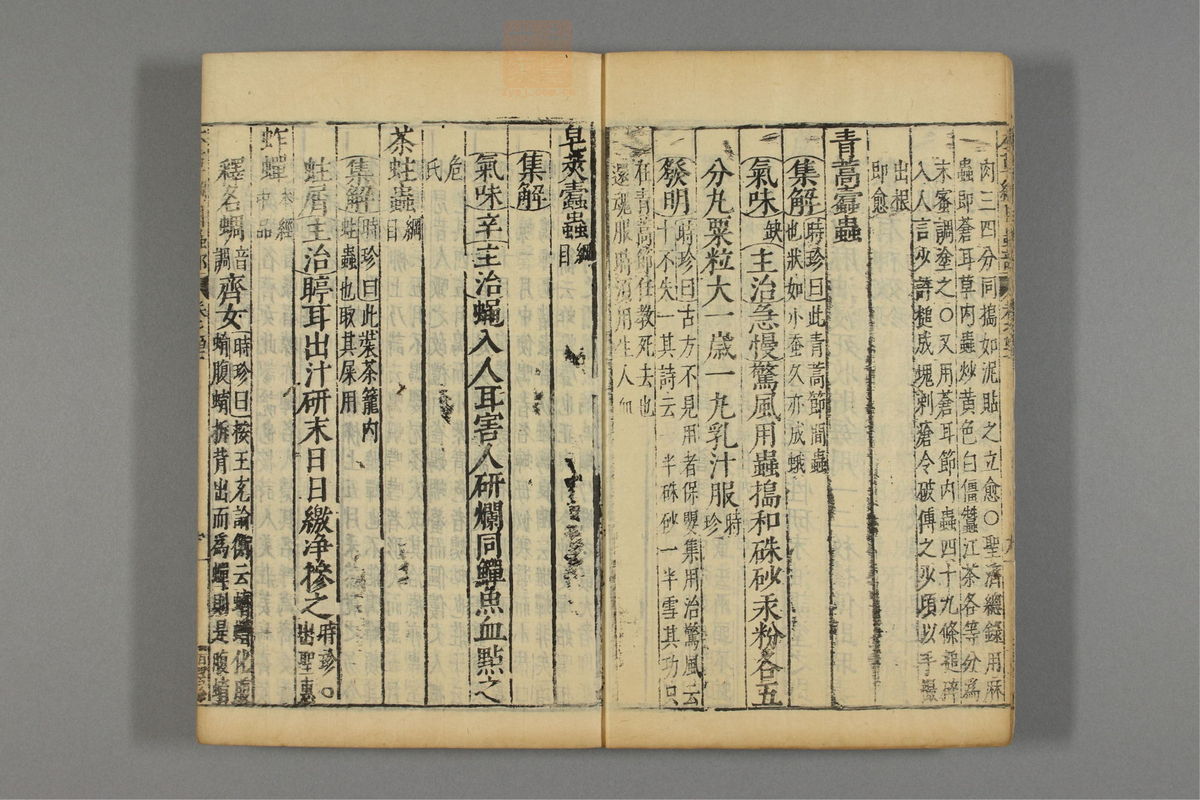 肉三四分同搗如泥貼之立愈○聖濟總錄用麻
蟲即蒼耳草內蟲炒黃色白僵蠶江茶各等分爲
末蜜調塗之○又用蒼耳節內蟲四十九條槌碎
入人言少許槌成塊刺瘡令破傅之少頃以手
出根
即愈
青蒿蠹蟲
集解時珍曰此青蒿節間蟲
也狀如小蚕久亦成蛾
氣味缺主治急慢驚風用蟲搗和硃砂汞粉各五
分丸粟粒大一歲一丸乳汁服時
珍
發明時珍曰古方不見用者保嬰集用治驚風云
十不失一其詩云 半硃砂一半雪其功只
在青蒿節任教死去也
還魂服時須用生人血
皂莢蠹蟲綱
目
集解
氣味辛主治蠅入人耳害人研爛同鱓魚血點之
危
氏
茶蛀蟲綱
目
集解時珍曰此裝茶籠內
蛀蟲也取其屎用
蛀屑主治聤耳出汁研末日日繳淨摻之時珍○
出聖惠
蚱蟬本經
中品
釋名蜩音
調齊女時珍曰按王充論衡云蠐螬化腹
蜟腹蜟拆背出而爲蟬則是腹蜟